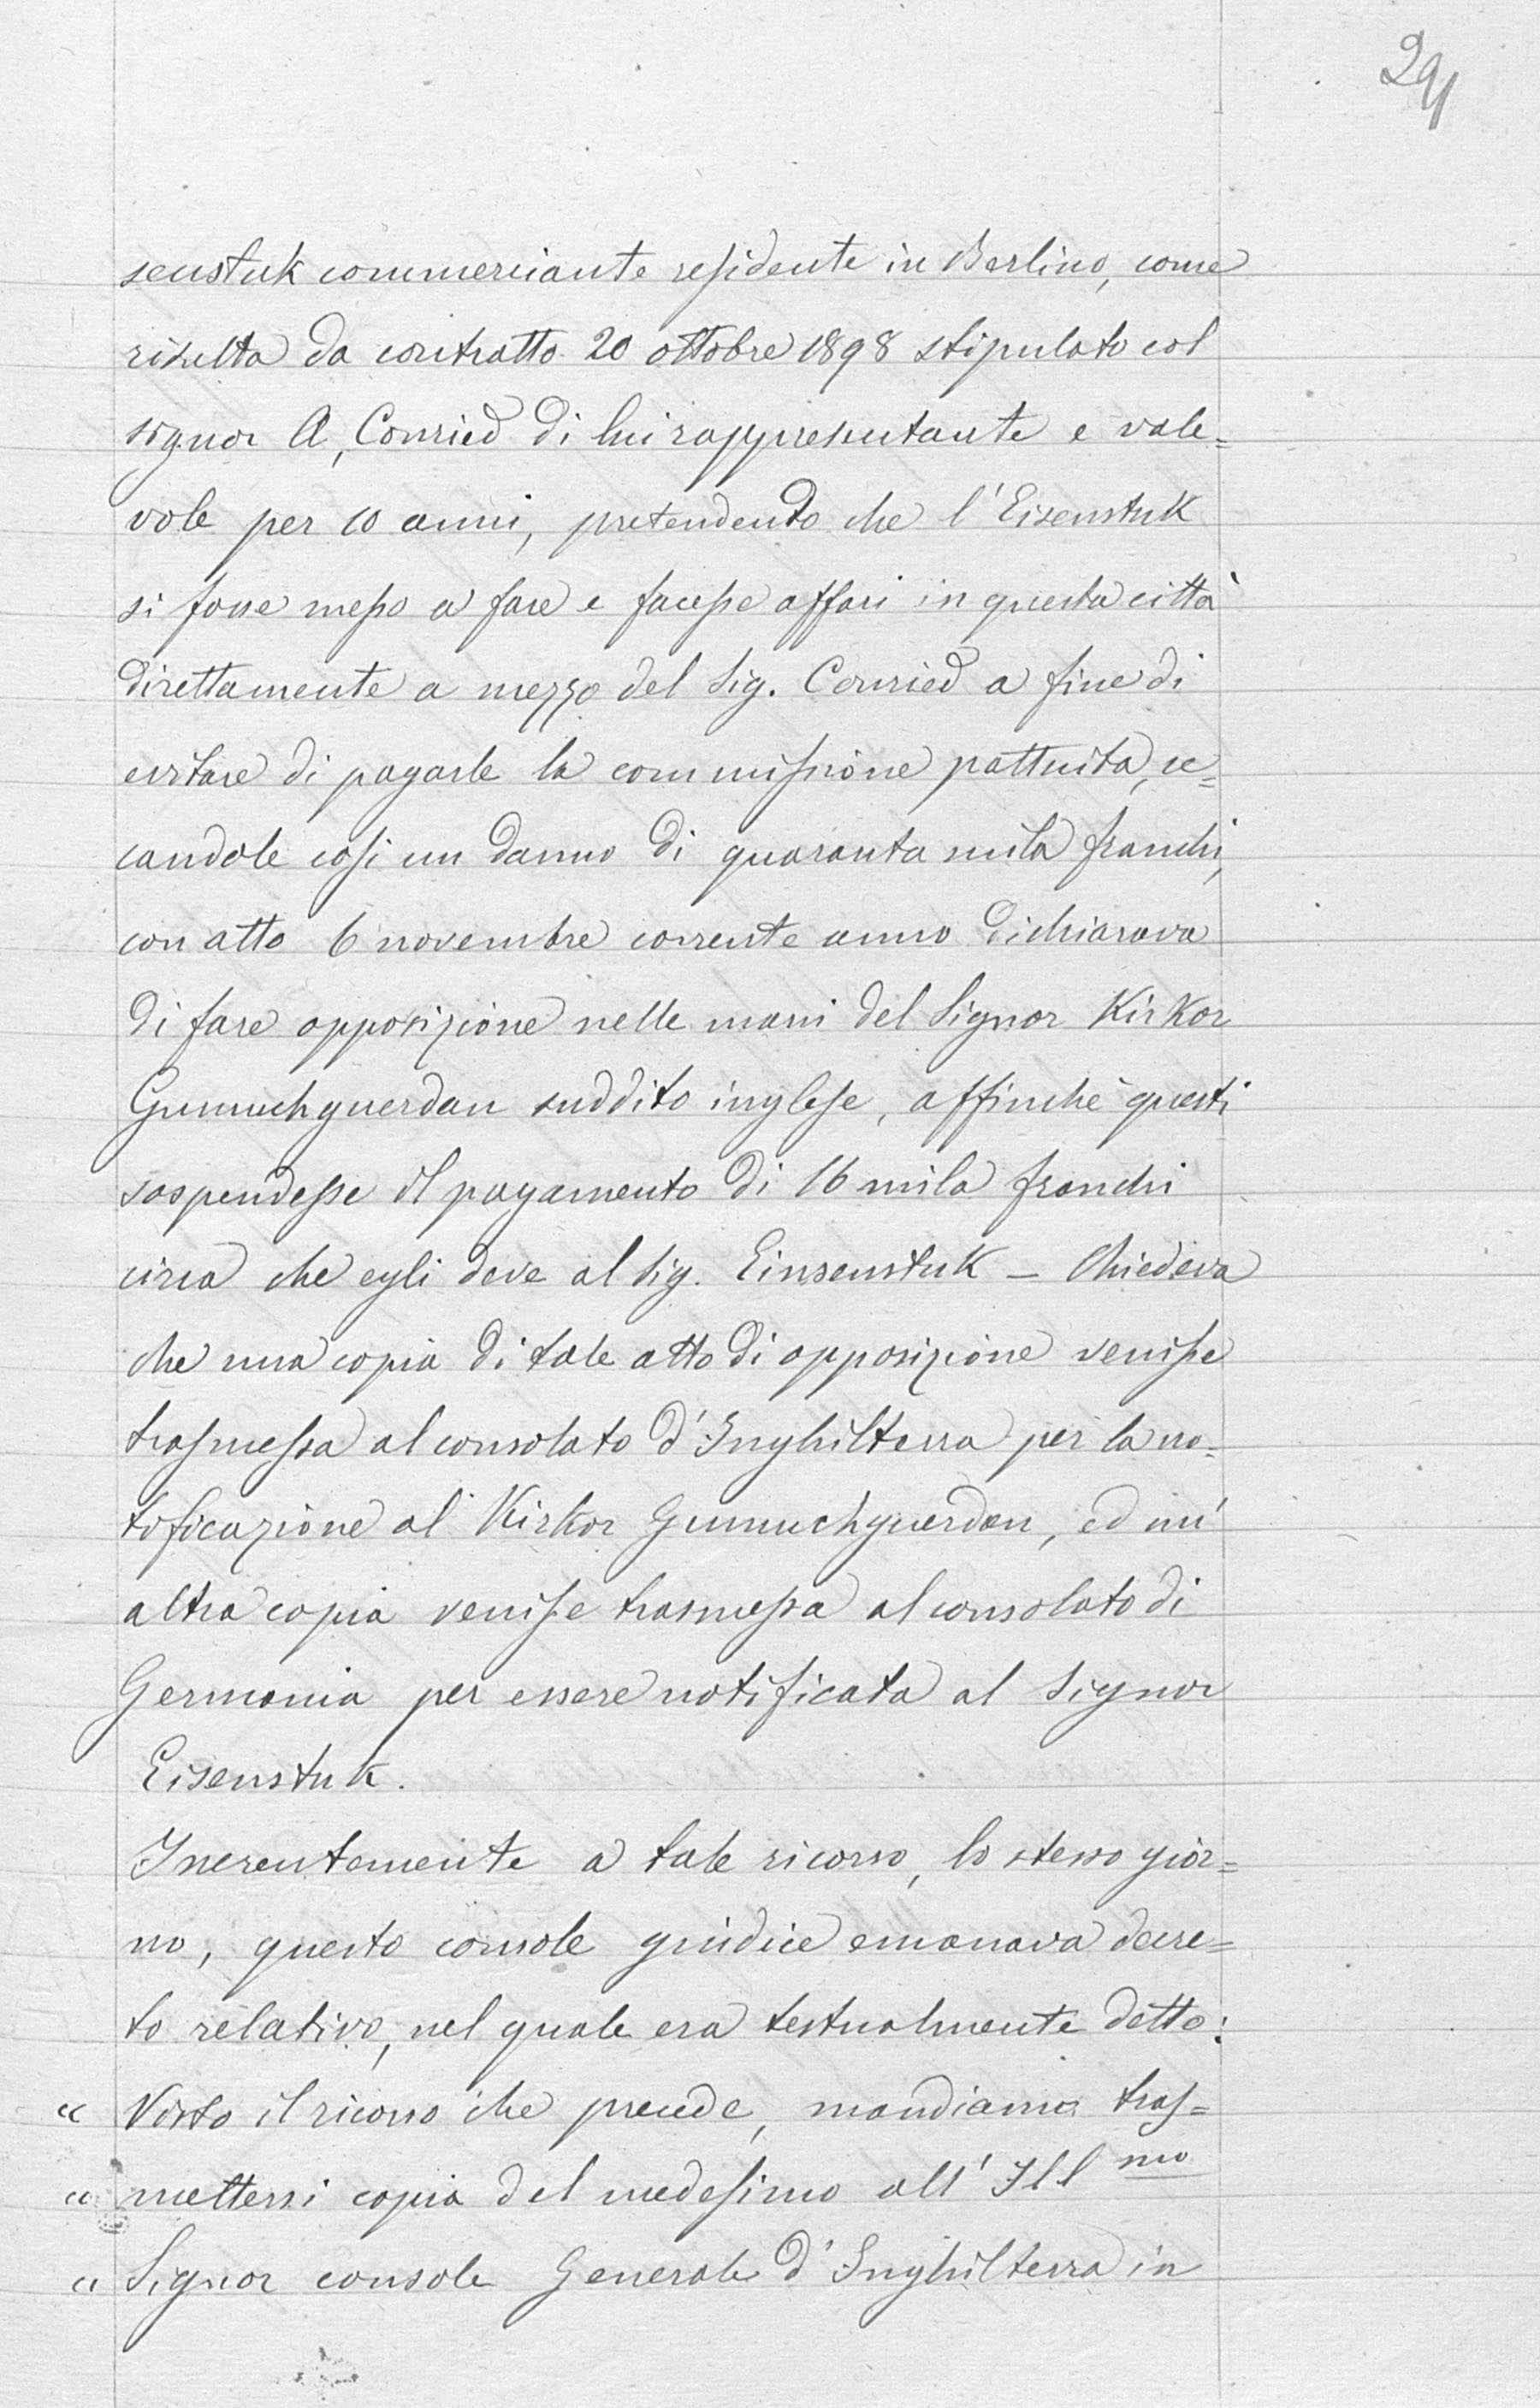 29
senstuk commerciante residente in Berlino, come
risulta da contratto 20 ottobre 1898 stipulato col
signor A, Conried di lui rappresentante e vale=
vole per 10 anni, pretendendo che l'Eisenstuk
si fosse messo a fare e facesse affari in questa città
direttamente a mezzo del Sig. Conried a fine di
evitare di pagarle la commissione pattuita, re=
candole così un danno di quaranta mila franchi,
con atto 6 novembre corrente anno dichiarava
di fare opposizione nelle mani del Signor Kirkor
Gumuchguerdan suddito inglese, affinchè questi
sospendesse il pagamento di 16 mila franchi
circa che egli deve al Sig. Einsenstuk – Chiedeva
che una copia di tale atto di opposizione venisse
trasmessa al consolato d'Inghilterra per la no=
tificazione al Kirkor Gumuchguerdan, ed un'
altra copia venisse trasmessa al consolato di
Germania per essere notificata al Signor
Eisenstuk.
Inerentemente a tale ricorso, lo stesso gior=
no, questo console giudice emanava decre=
to relativo, nel quale era testualmente detto:
" Visto il ricorso che precede, mandiamo tras=
" mettersi copia del medesimo all'Ill mo
" Signor console Generale d'Inghilterra in